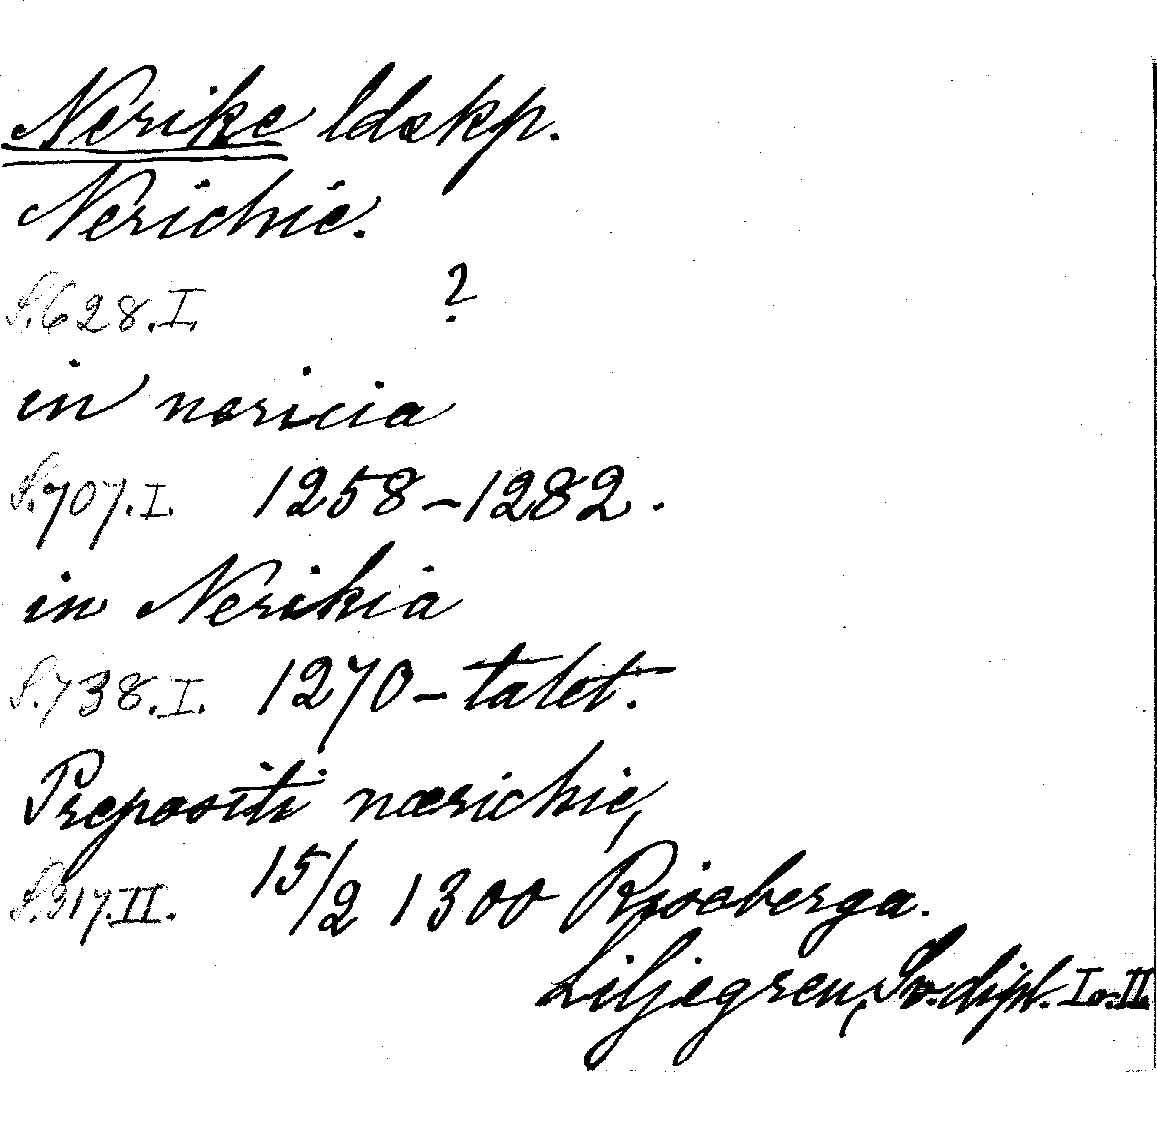 Nerike ldskp.
Nerichie.
S. 628. I. ?
in nericia
S. 707. I. 1258-1282.
in Nerikia
S. 738. I. 1270-talet.
Prepositi nærichie,
S. 317. II. 15/2 1300 Riseberga.
Liljegren, Sv. dipl. I o. II.